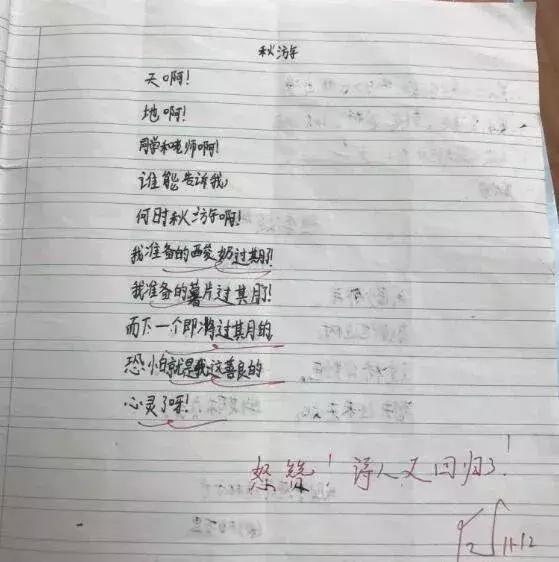 秋游
天啊!
地啊!
同学和老师啊!
谁能告诉我
何时秋游啊!
我准备的西瓷奶过期了!
我准备的薯片过期了!
而下一个即将过期的
恐怕就是我这善良的
心灵了呀!
怒赞! 诗人又回归了!
11-12